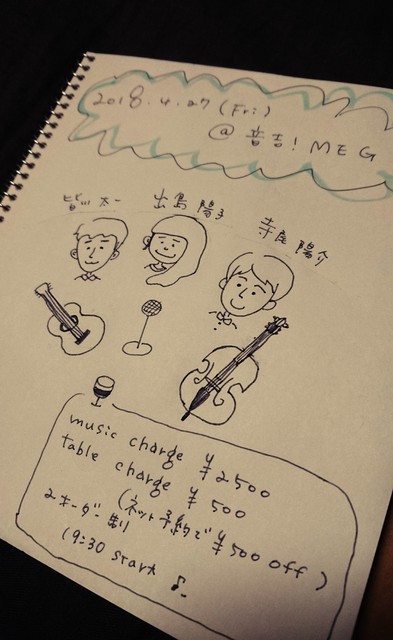 2018.4.27 (Fri)
@ 音吉! MEG
皆川 太一
出島 陽子
寺尾 陽介
music charge ¥2500
table charge ¥500
(ネット予約で ¥500 off)
2オーダー 制
19:30 start ♪